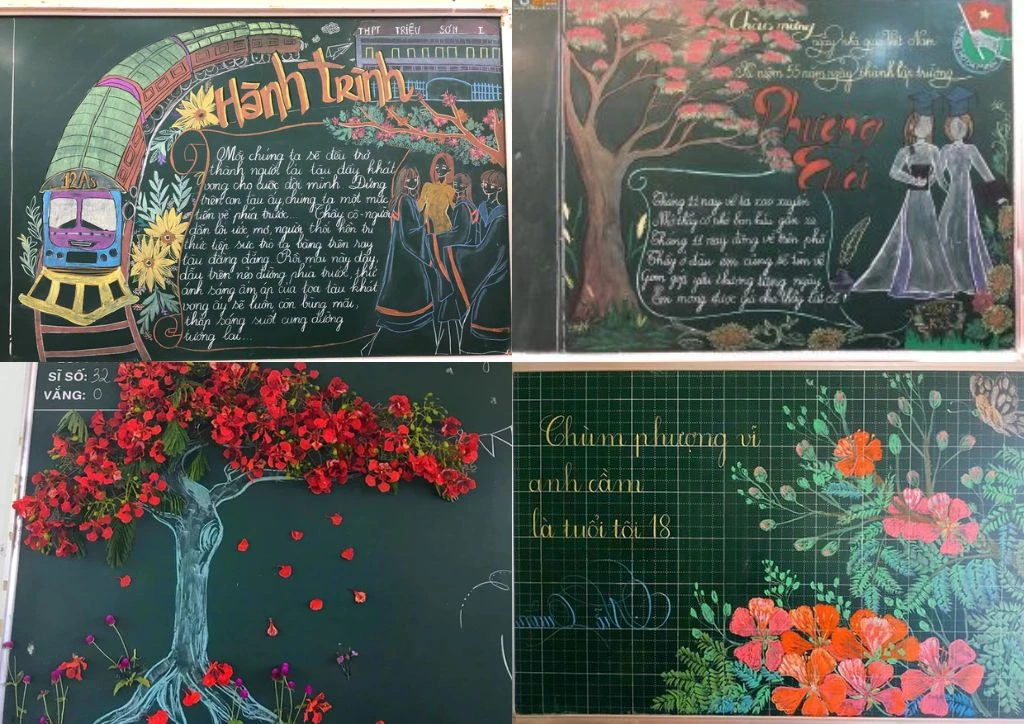 THPT TRIỆU SƠN I
Hành trình
12A5
Mỗi chúng ta sẽ đều trở
thành người lái tàu đầy khát
vọng cho cuộc đời mình. Đứng
trên con tàu ấy chúng ta một mực
tiến về phía trước... Thầy cô - người
dẫn lối ước mơ, người thổi hồn tri
thức tiếp sức trở lạ bằng trên ray
tàu đằng đẵng. Rồi mai này đây,
dẫu trên nẻo đường phía trước, thứ
ánh sáng ấm áp của tọa tàu khát
vọng ấy sẽ luôn còn bùng mãi,
thắp sáng suốt cung đường
tương lai...
Chào mừng
ngày nhà giáo Việt Nam
Kỉ niệm 55 năm ngày thành lập trường
Phượng
Cuối
Tháng 11 nay về lá xao xuyến
Một thầy cô nhỏ bạn bầu gần xa
Tháng 11 nay đông về trên phố
Thầy ở đâu em cũng sẽ tìm về
gợi yêu thương từng ngày
Em mong được
SĨ SỐ: 32
VẮNG: 0
Chùm phượng vĩ
anh cầm
là tuổi tôi 18